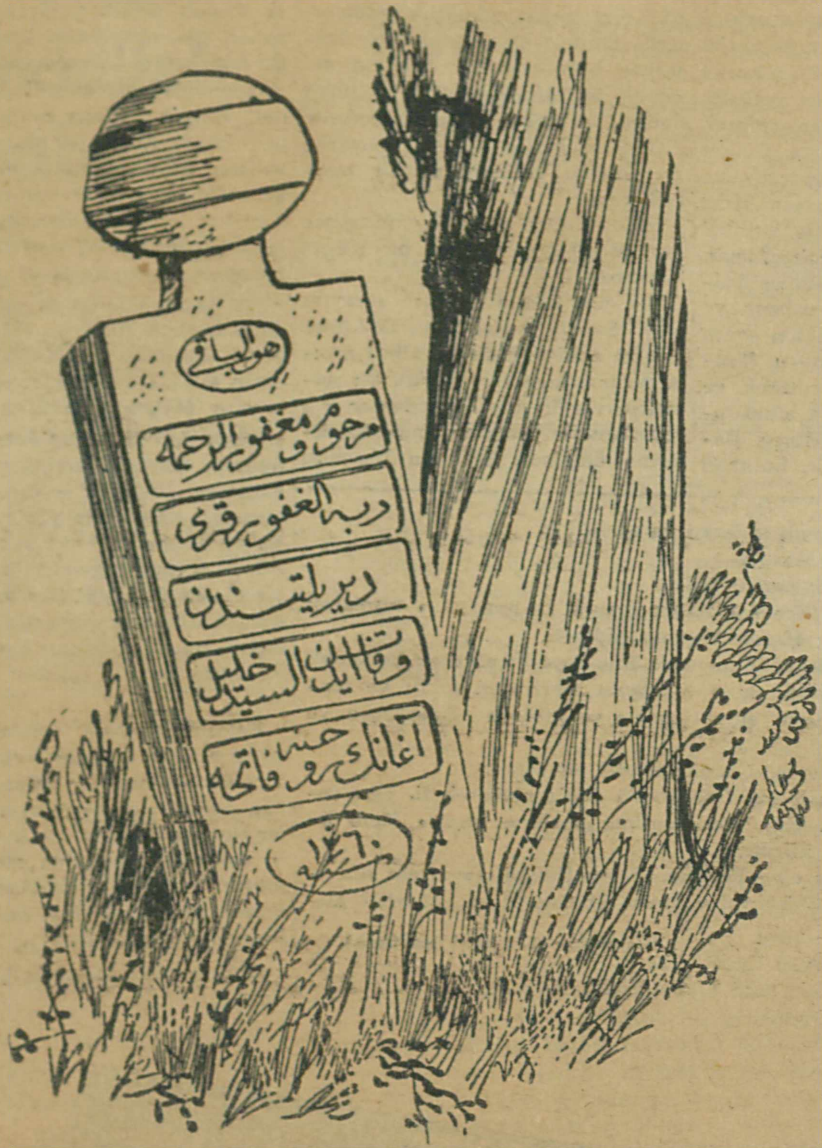 هو الباقي
مرحوم و مغفور الرحمه
ربه الغفور قرى
دير يليتسندن
وفات ايدن السيد خليل
آغانك روحنه فاتحه
سنه ١٢٦٠